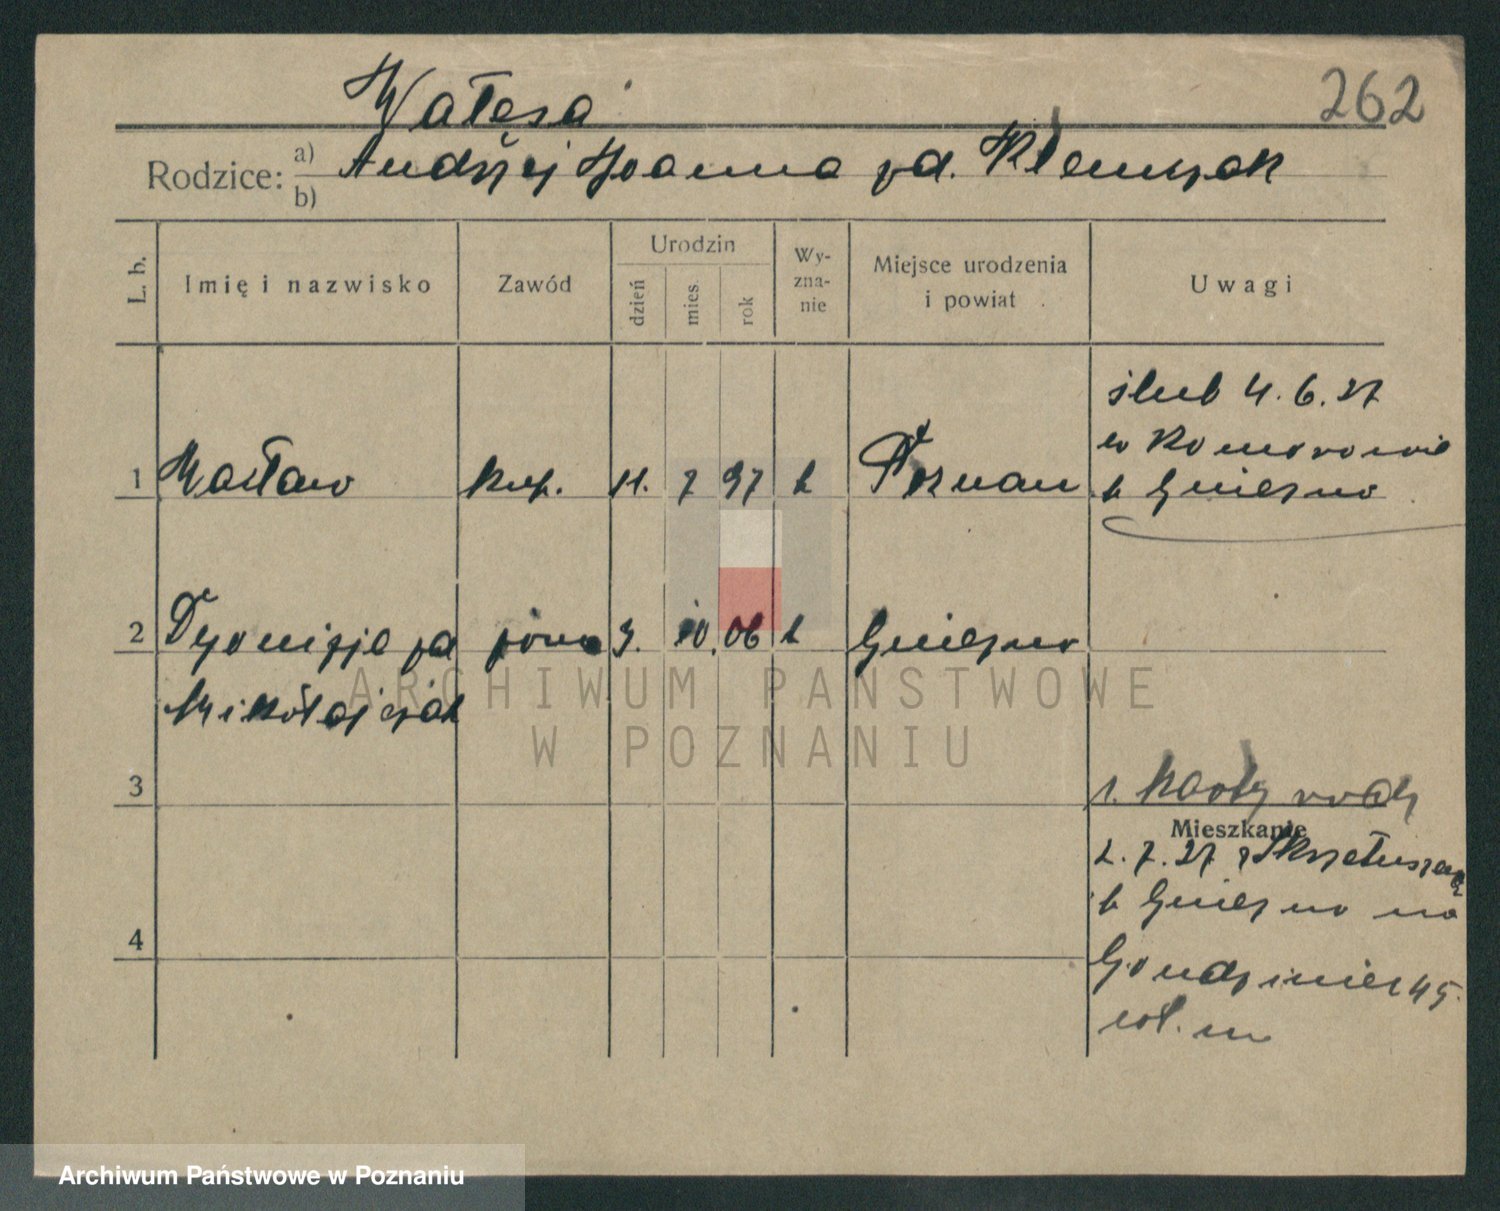 262
Wałesa
Rodzice: a) Andrzej Joanna zd. Klemczak
b)
L. b. Imię i nazwisko Zawód Urodzin dzień mies. rok Wy-zna-nie Miejsce urodzenia i powiat Uwagi
ślub 4.6.27
w Komorowie
1 Wacław kup. 11. 7 97 k Poznań k Gniezna
2 Dyonizja zd żona 3. 10. 06 k Gniezno
Mikołajczak
3
1. karty rodz
Mieszkanie
2.7.27 z Skrzetuszewa
k Gniezna na
4
45
ARCHIWUM PAŃSTWOWE
W POZNANIU
Archiwum Państwowe w Poznaniu